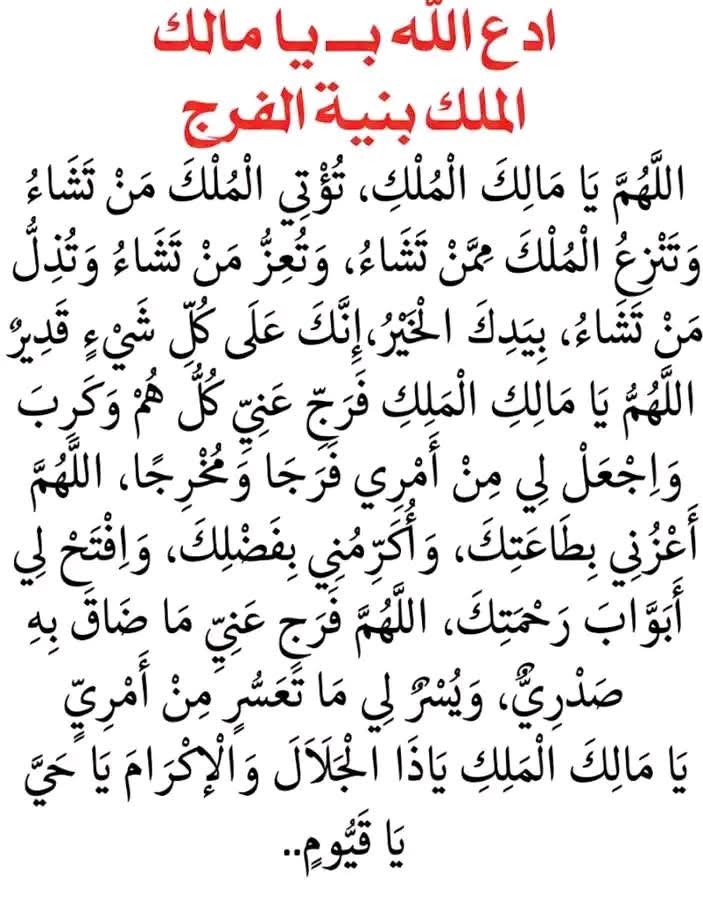 ادع الله بـ يا مالك
الملك بنية الفرج
اللَّهُمَّ يَا مَالِكَ الْمُلْكِ، تُؤْتِي الْمُلْكَ مَنْ تَشَاءُ
وَتَنْزِعُ الْمُلْكَ مِمَّنْ تَشَاءُ، وَتُعِزُّ مَنْ تَشَاءُ وَتُذِلُّ
مَنْ تَشَاءُ، بِيَدِكَ الْخَيْرُ،إِنَّكَ عَلَى كُلِّ شَيْءٍ قَدِيرٌ
اللَّهُمُّ يَا مَالِكِ الْمَلِكِ فَرَجِّ عَنِيِّ كُلُّ هُمْ وَكَرِبَ
وَاِجْعَلْ لِي مِنْ أَمْرِي فَرَجَا وَمُخْرِجًا، اللَّهُمَّ
أَعْزُنِي بِطَاعَتِكَ، وَأُكَرِّمُنِي بِفَضْلِكَ، وَاِفْتَحْ لِي
أَبَوَّابَ رَحْمَتِكَ، اللَّهُمَّ فَرَجٍ عَنِيِّ مَا ضَاقَ بِهِ
صَدْرِيٌّ، وَيُسْرٌ لِي مَا تَعَسُّرٍ مِنْ أَمْرِيٍّ
يَا مَالِكَ الْمَلِكِ يَاذَا الْجَلَالَ وَالْإكْرَامَ يَا حَيَّ
يَا قَيُّومٍ..